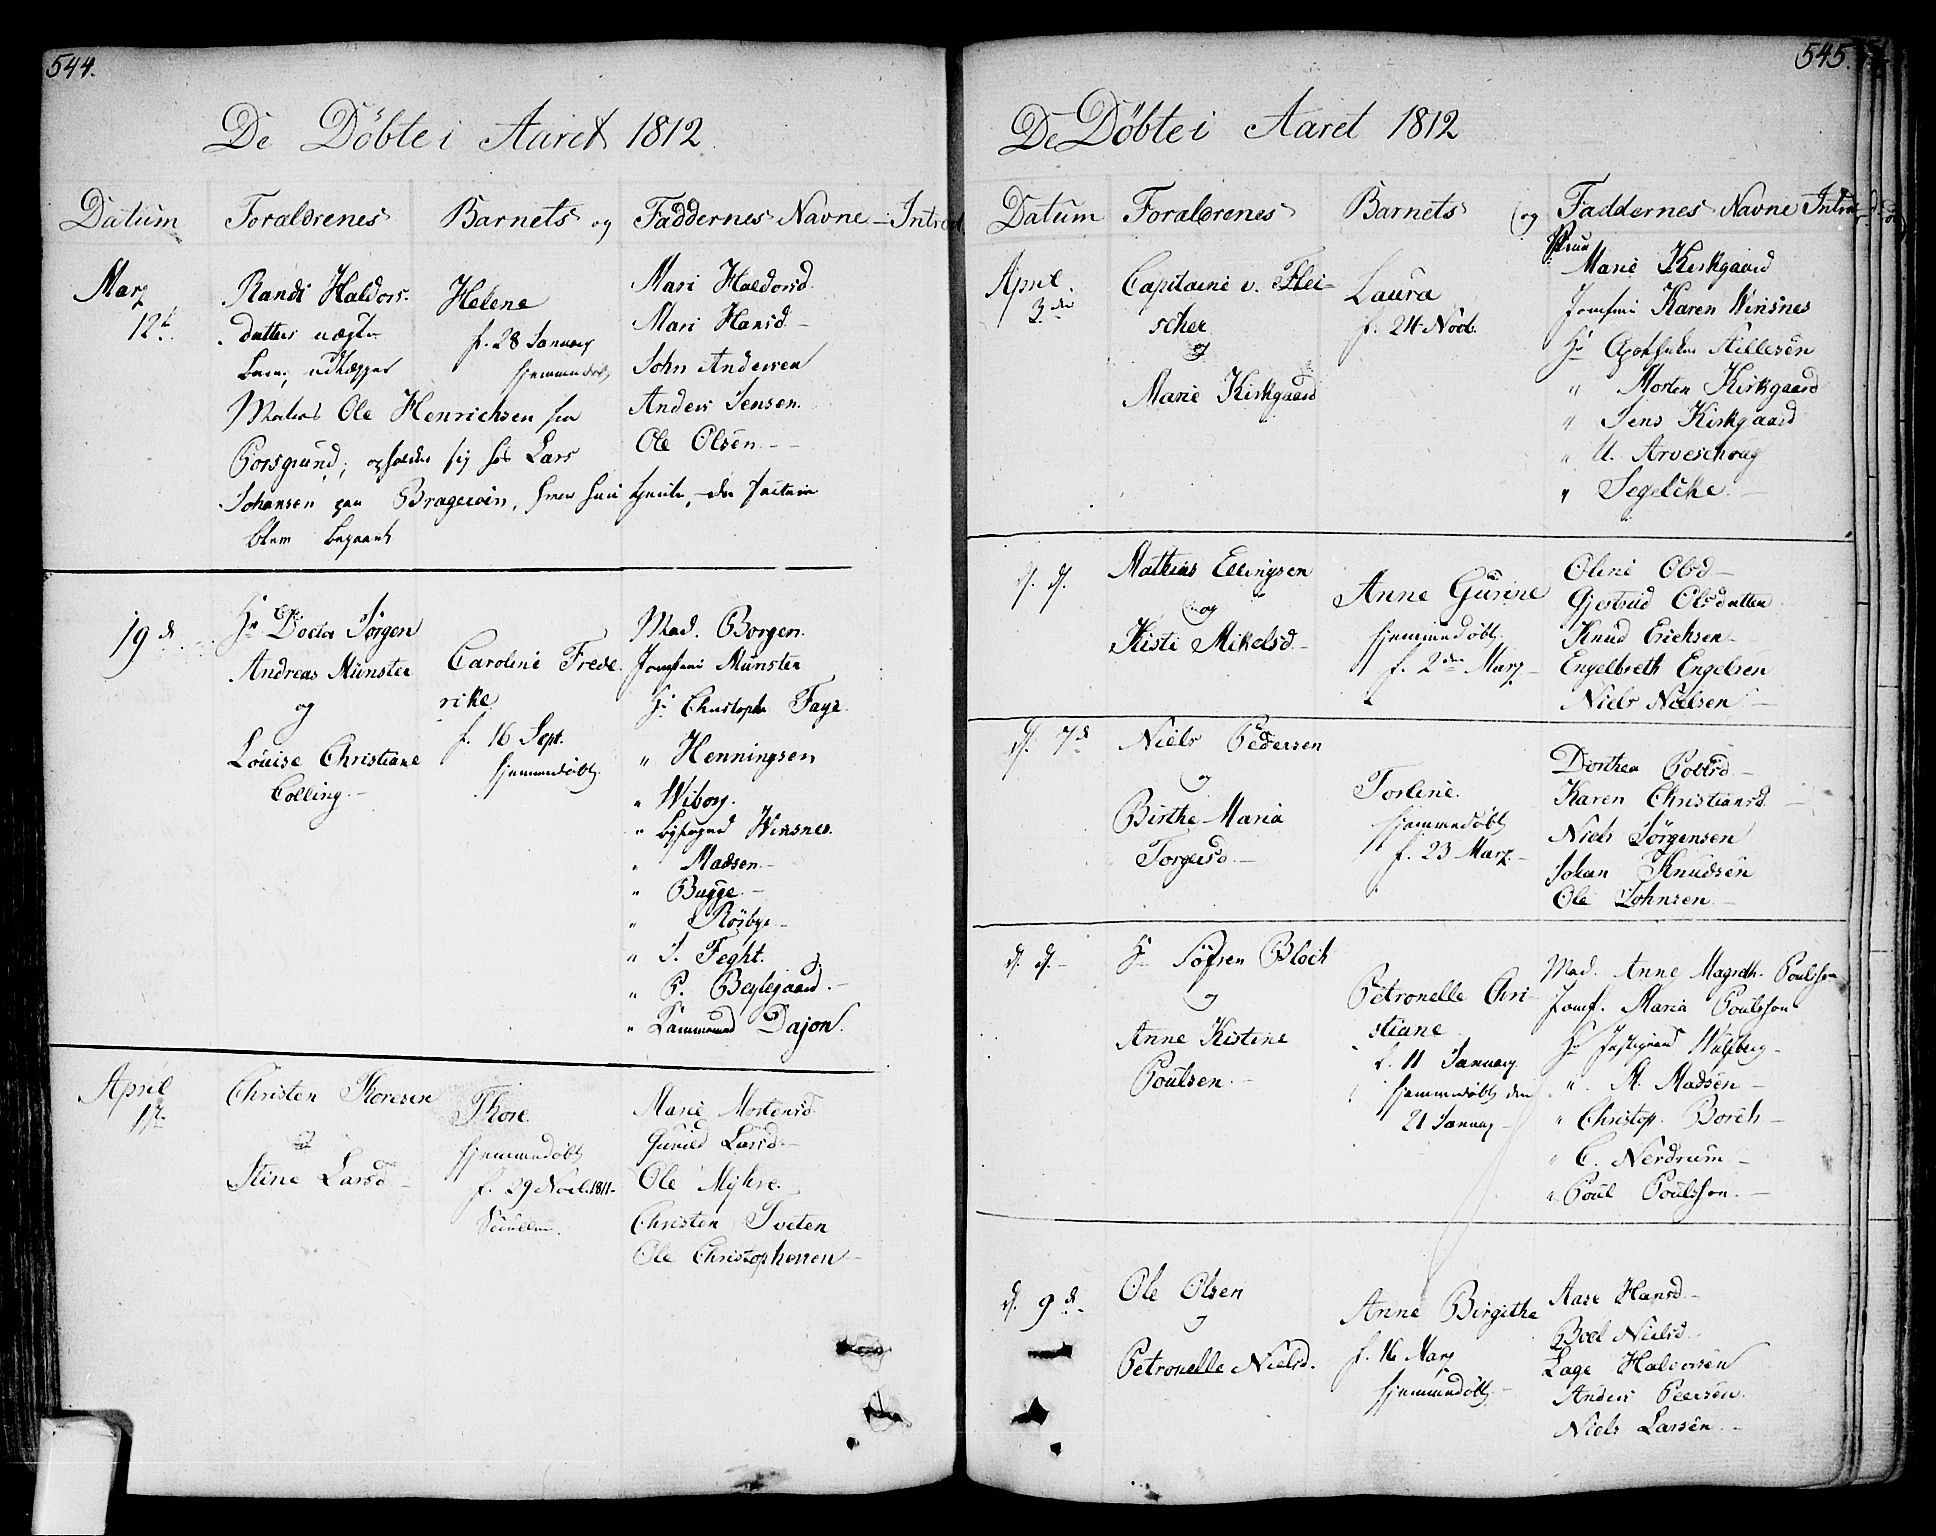 544.
De Döbte i Aaret 1812.
Datum Foraldrenes Barnets og Faddernes Navne - Introd
Marz
12te
Randi Haldors-
datters uægte
Barn, udlægger
Matros Ole Henrichsen fra
Porsgrund; opholder sig hos Lars
Johansen paa Brageroen, hvor hun tjente,
begaaet
Helene
f. 28 January
hjemmedöbt
Mari Haldorsd.
Mari Hansd. -
John Andersen
Anders Jensen.
Ole Olsen. - -
19 d
Hr Doctor Jörgen
Andreas Münster
og
Louise Christiane
Colling. -
Caroline Frede
rike
f. 16 Sept.
hjemmedöbt.
Mad. Borgen.
Jomfrue Münster
Hr Christopher Faye.
" Henningsen
" Wiborg.
" Byfoged Winsnes.
" Madsen. -
" Bugge. -
" Rosbye -
" J. Feght.
" P. Beylegaard. -
" Dajon.
April
1te
Christen Thoresen
og
Stine Larsd -
Thore.
hjemmedöbt
f. 29 Novb. 1811.
Marie Mortensd.
Gunild Larsd. -
Ole Myhre.
Christen Tveten
Ole Christophersen -
545.
De Döbte i Aaret 1812
Datum Foraldrenes Barnets (og Faddernes Navne Introd
April.
3die
Capitaine v. Flei-
scher
og
Marie Kirkgaard
Laura
f. 24 Novb.
Frue
Marie Kirkgaard
Jomfrue Karen Winsnes
Hr Apotheker Tillesen
" Morten Kirkgaard
" Jens Kirkgaard
" U. Arveschoug
" Segelcke. -
d. d.
Mathias Ellingsen
og
Kisti Mikelsd. -
Anne Gurine
hjemmedöbt.
f. 2den Marz -
Oline Olsd -
Gjertrud Olsdatter
Knud Erichsen -
Engelbreth Engelsen
Niels Nielsen -
d. 7d
Niels Pedersen
og
Birthe Maria
Torgersd. -
Torline.
hjemmedöbt
f. 23 Marz. -
Dorthea Povlsd -
Karen Christiansd. -
Niels Jörgensen
Johan Knudsen
Ole Johnsen. -
d. d. -
Hr Söfren Bloch
og
Anne Kistine
Poulsen. -
Petronelle Chri-
stiane
f. 11 January
hjemmedöbt den
21 January -
Mad. Anne Magreth. Poulsson
Jomf. Maria Poulsson
Hr Justizraad Wulfsberg -
" M. Madsen -
" Christop. Borch -
" C. Nerdrum -
" Poul Poulsson. -
d. 9d. -
Ole Olsen
og
Petronelle Nielsd.
Anne Birgithe
f. 16 Marz
hjemmedöbt. -
Aase Hansd. -
Boel Nielsd.
Lage Halvorsen
Anders Peersen.
Niels Larsen. -